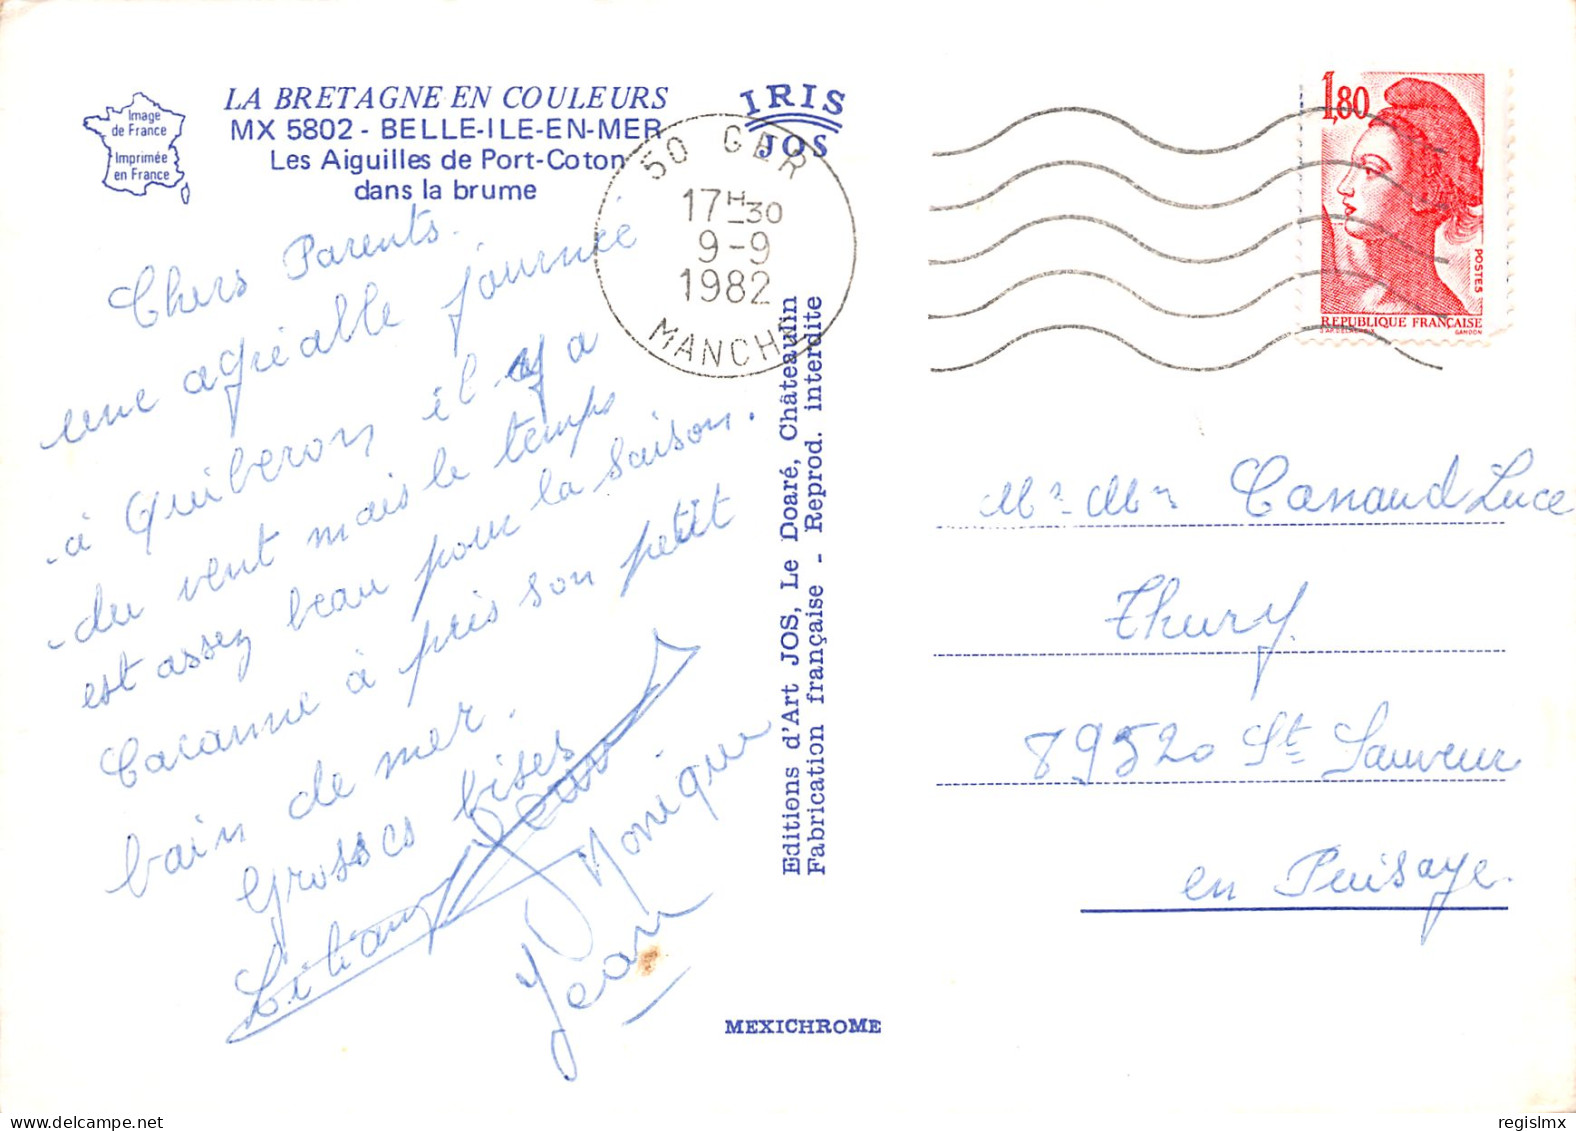 Image
de France
Imprimée
en France
LA BRETAGNE EN COULEURS
MX 5802 - BELLE-ILE-EN-MER
Les Aiguilles de Port-Coton
dans la brume
IRIS
JOS
50 GER
17H-30
9-9
1982
MANCHE
1,80
POSTES
REPUBLIQUE FRANÇAISE
GANDON
Chers Parents.
une agréable journée
à Quiberon il y a
du vent mais le temps
est assez beau pour la saison.
à pris son petit
bain de mer.
Grosses bises
Monique
Jean
Editions d'Art JOS, Le Doaré, Châteaulin
Fabrication française - Reprod. interdite
MEXICHROME
Mr Mm Canaud Luce
Thury
89520 St Sauveur
en Puisaye.
regislmx